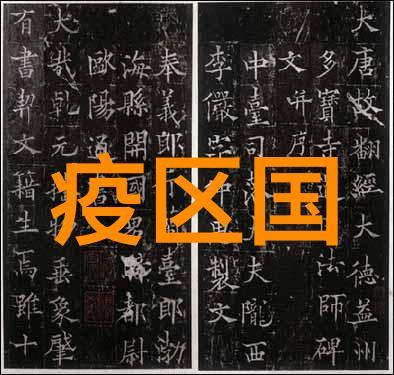 疫区国
大唐故翻經大德益州
多寶寺法師碑
文并序
中臺司夫隴西
李儼製文
奉義郎臺郎渤
海縣開國都尉
歐陽通
大哉乾元垂象肇
有書契文籍生焉雖十